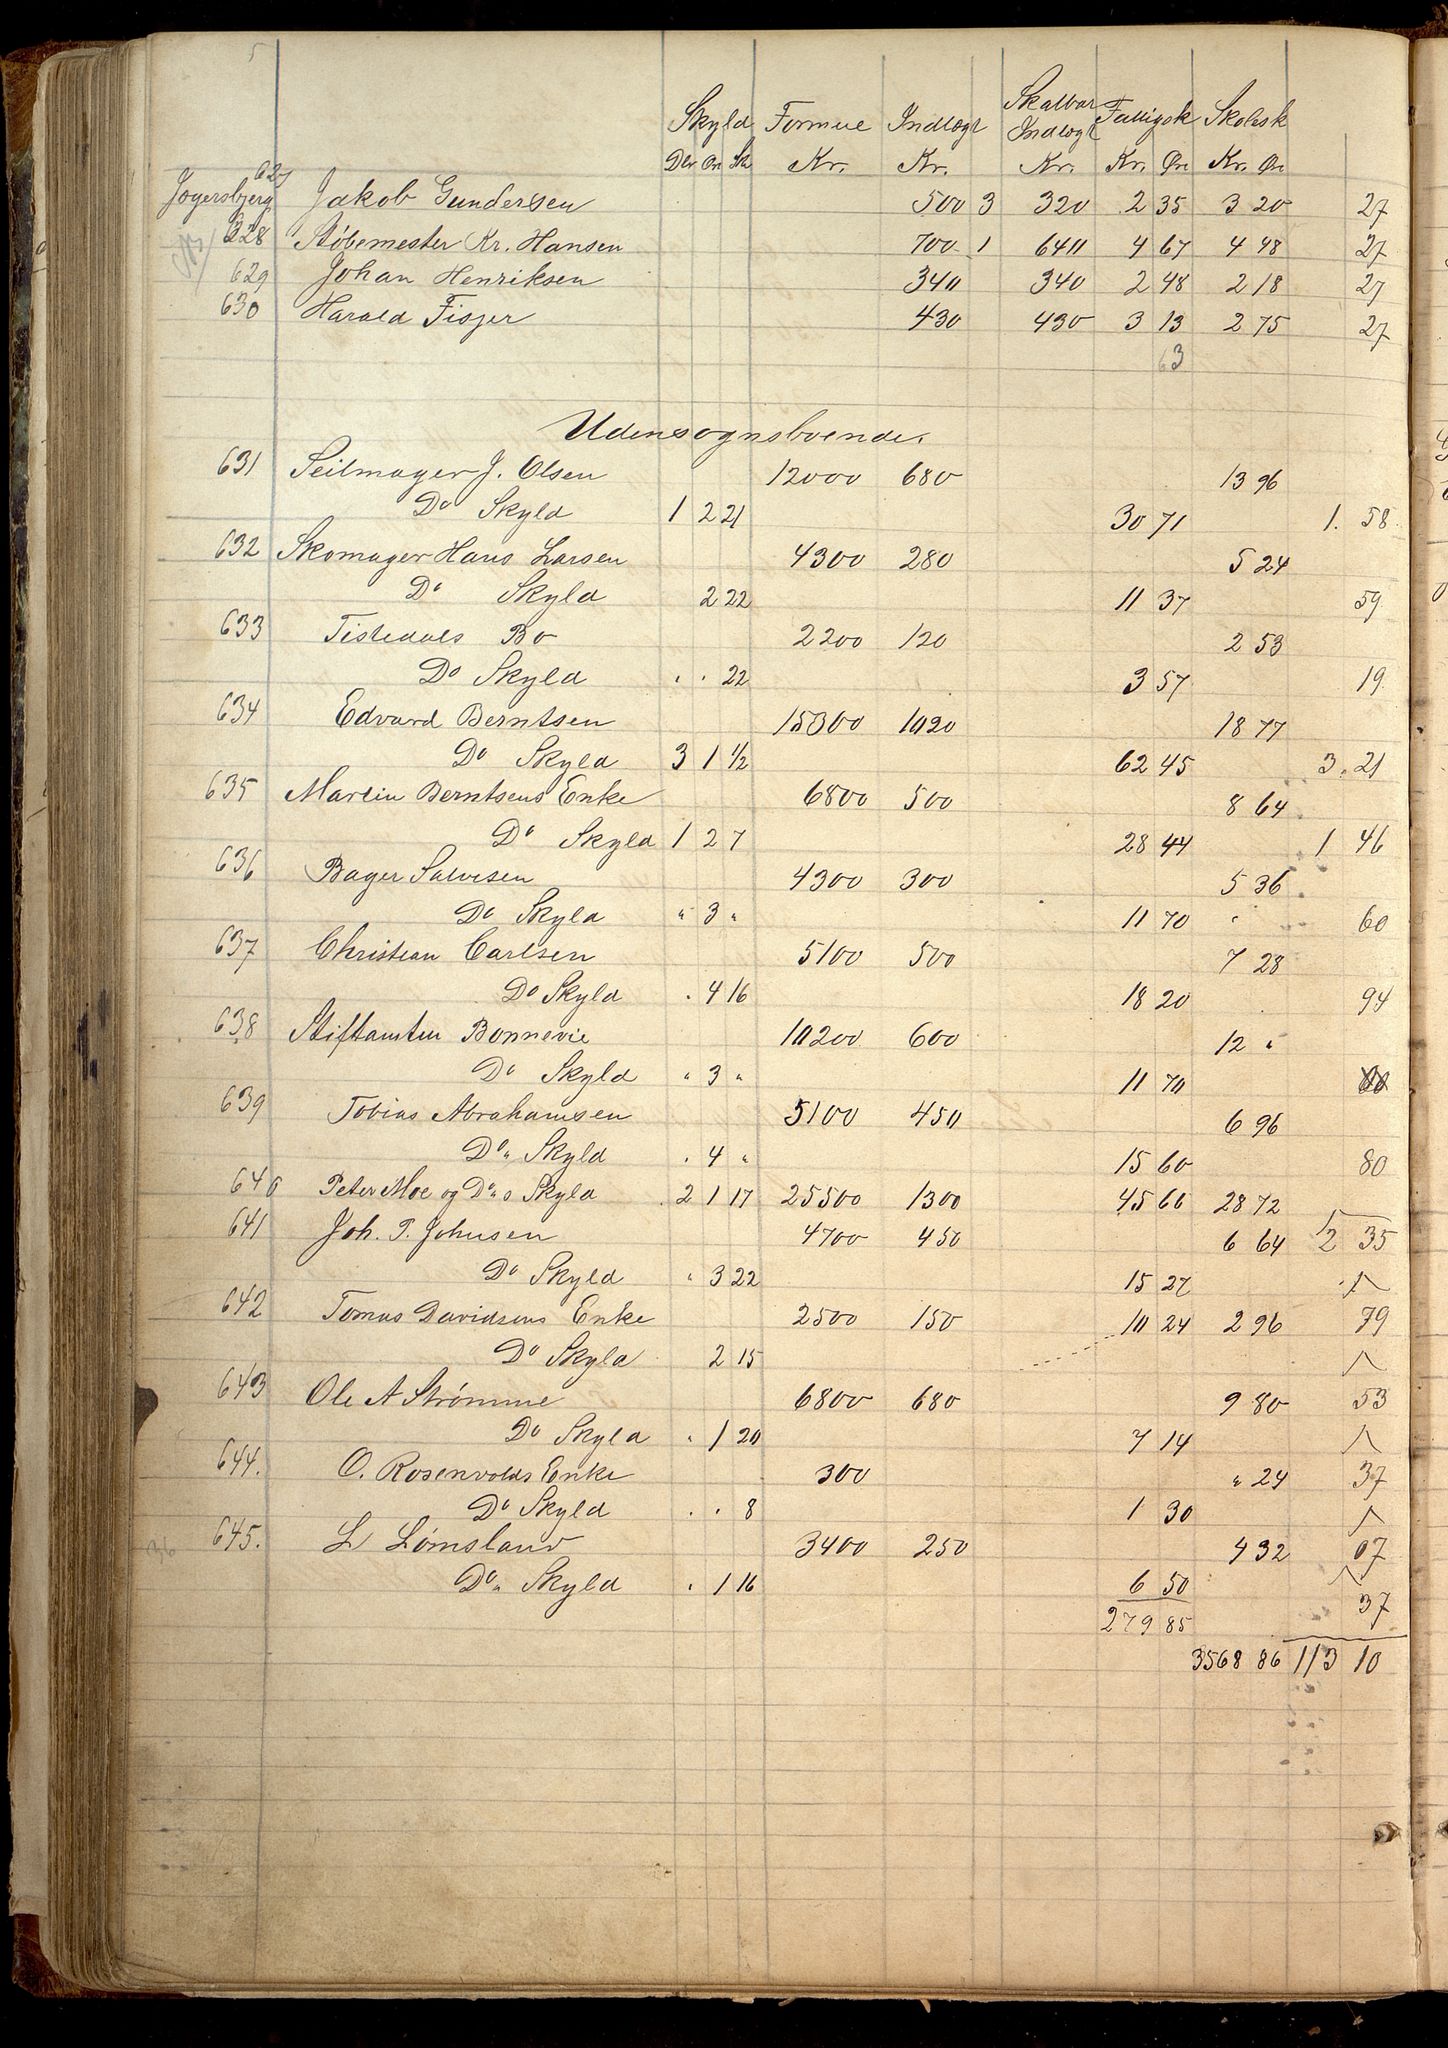 Skyld Formue Indtægt Skatbar Indtægt Fattigsk Skolesk
Dlr Ort Sk Kr. Kr. Kr. Kr. Ør Kr. Ør
627
Jogersbjerg Jakob Gundersen 500 3 320 2 35 3 20 27
628 Støbemester Kr. Hansen 700 1 640 4 67 4 48 27
629 Johan Henriksen 340 340 2 48 2 18 27
630 Harald Fisjer 430 430 3 13 2 75 27
63
Udensognsboende.
631 Seilmager J. Olsen 12000 680 13 96
Do Skyld 1 2 21 30 71 1. 58
632 Skomager Hans Larsen 4300 280 5 24
Do Skyld 2 22 11 37 59
633 Tistedals Bo 2200 120 2 53
Do Skyld " " 22 3 57 19
634 Edvard Berntsen 15300 1020 18 77
Do Skyld 3 1 1/2 62 45 3. 21
635 Martin Berntsens Enke 6800 500 8 64
Do Skyld 1 2 7 28 44 1 46
636 Bager Salvesen 4300 300 5 36
Do Skyld " 3 " 11 70 " 60
637 Christian Carlsen 5100 500 7 28
Do Skyld " 4 16 18 20 94
638 Stiftamtm Bonnevie 10200 600 12 "
Do Skyld " 3 " 11 70
639 Tobias Abrahamsen 5100 450 6 96
Do " Skyld " 4 " 15 60 80
640 Peter Moe og Do s Skyld 2 1 17 25500 1300 45 66 28 72
641 Joh. P. Johnsen 4700 450 6 64 2 35
Do Skyld " 3 22 15 27
642 Tomas Davidsens Enke 2500 150 10 24 2 96 79
Do Skyld 2 15
643 Ole A Strømme 6800 680 9 80 53
Do Skyld " 1 20 7 14
644. O. Rosenvolds Enke 300 " 24 37
Do Skyld " " 8 1 30
645. L Lømsland 3400 250 4 32 07
Do " Skyld " 1 16 6 50 37
279 85
3568 86 113 10